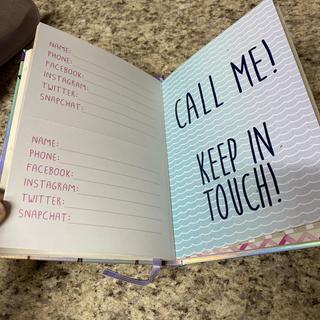 NAME:
PHONE:
FACEBOOK:
INSTAGRAM:
TWITTER:
SNAPCHAT:
NAME:
PHONE:
FACEBOOK:
INSTAGRAM:
TWITTER:
SNAPCHAT:
CALL ME!
KEEP IN
TOUCH!